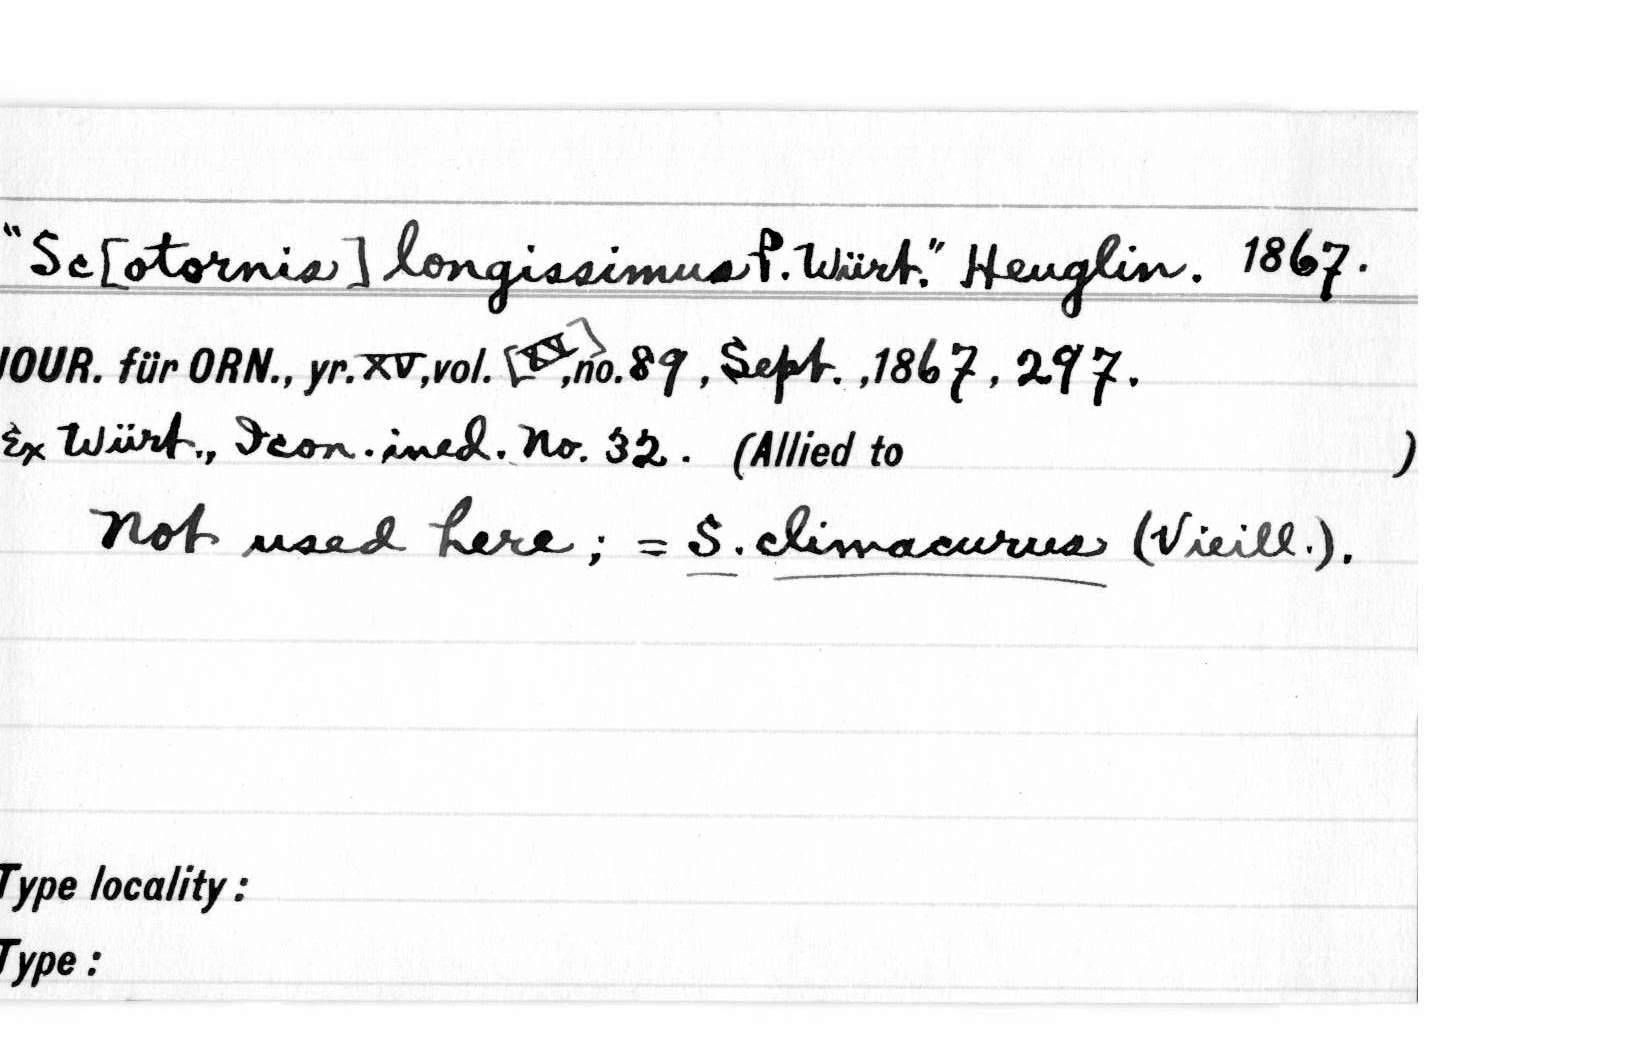 "Sc[otornis] longissimus P. Würt." Heuglin. 1867.
JOUR. für ORN., yr. XV, vol. [XV], no. 89, Sept., 1867, 297.
Ex Würt., Icon. ined. No. 32. (Allied to )
Not used here; = S. climacurus (Vieill.).
Type locality:
Type: